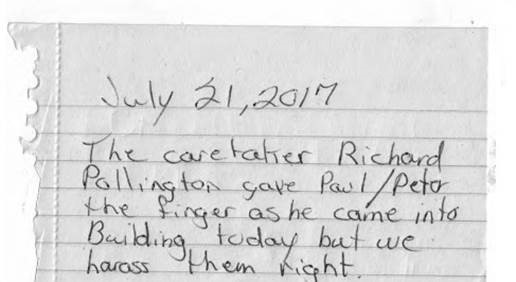 July 21, 2017
The caretaker Richard
Pollington gave Paul/Peter
the finger as he came into
Building today but we
harass them right.